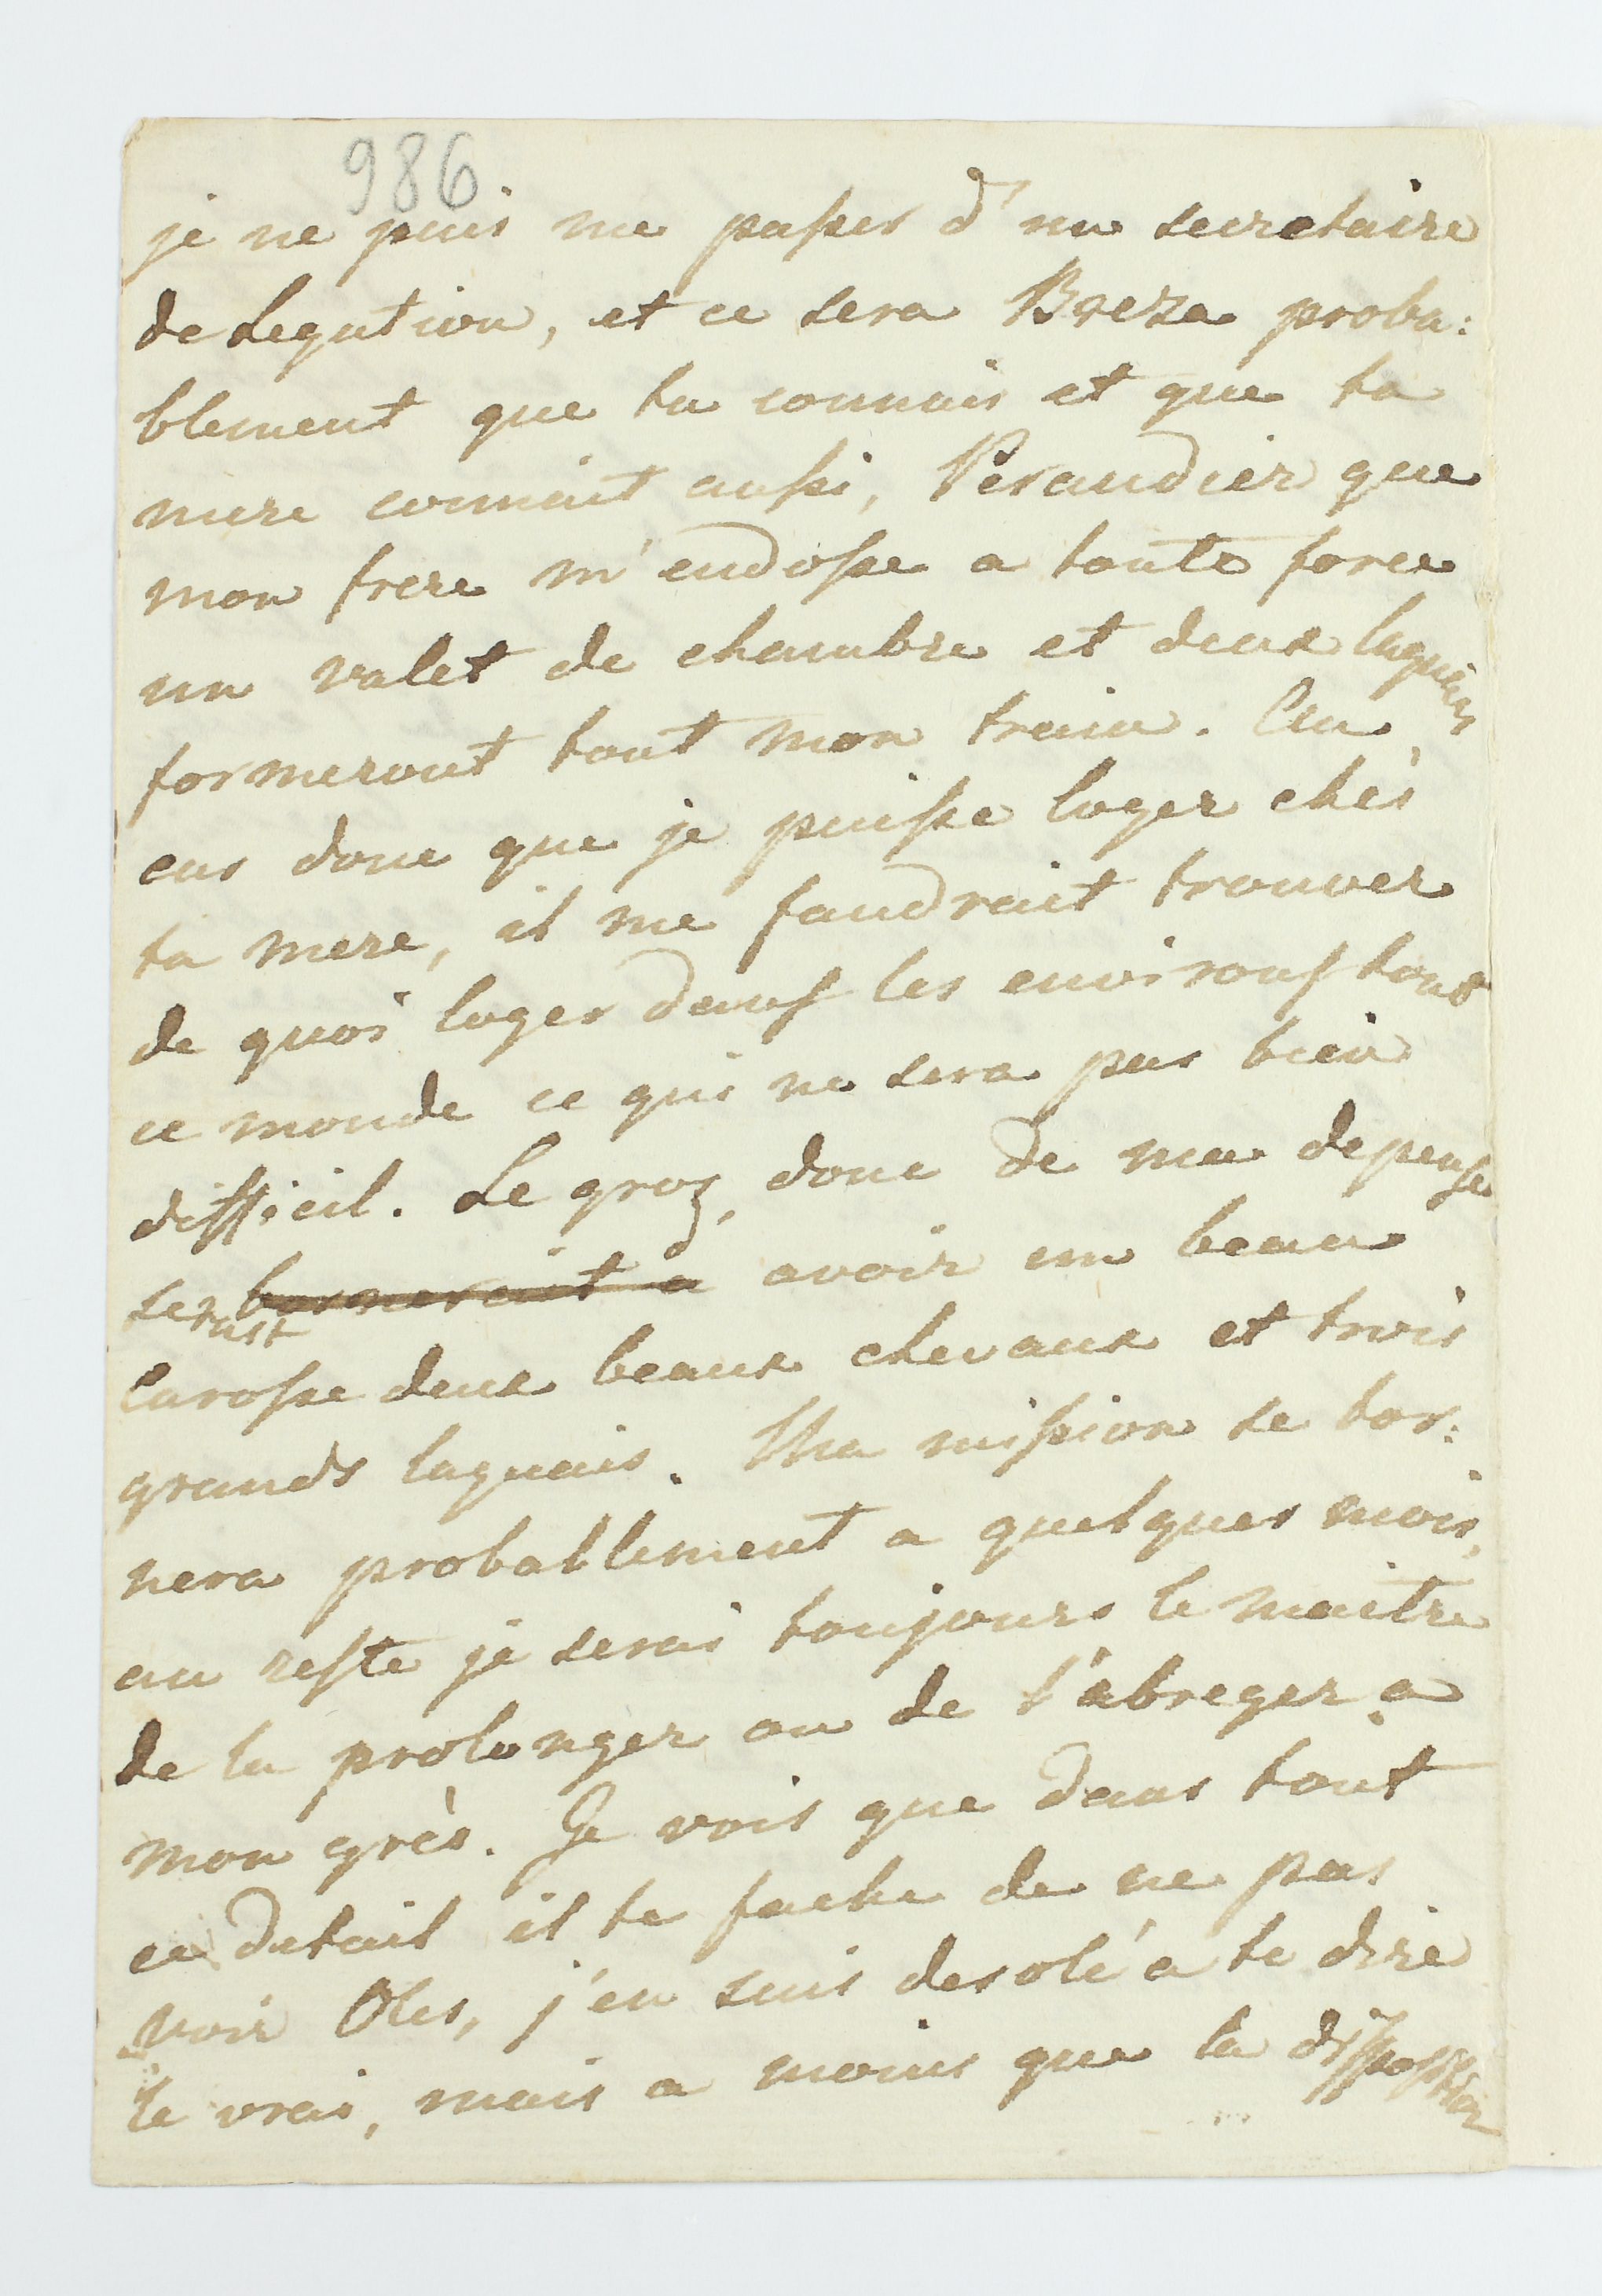 986
je ne puis me passer d'un secretaire
de Legation, et ce sera Breza proba:
blement que tu connais et que ta
mere connait aussi, Perandier que
mon frere m'endosse a toute force
un valet de chambre et deux laquais
formeront tout mon train. Au
cas donc que je puisse loger chès
ta mere, il me faudrait trouver
de quoi loger dans les environs tout
ce monde ce qui ne sera pas bien
difficil. Le gros, donc de ma depense
serait bornerait a avoir un beau
Carosse deux beaux chevaux et trois
grands laquais. Ma mission se bor:
nera proballement a quelques mois,
au reste je serai toujours le maitre
de la prolonger ou de l'abreger a
mon grès. Je vois que dans tout
ce detail il te fache de ne pas
voir Oles, j'en suis desolé a te dire
le vrai, mais a moins que la disposition